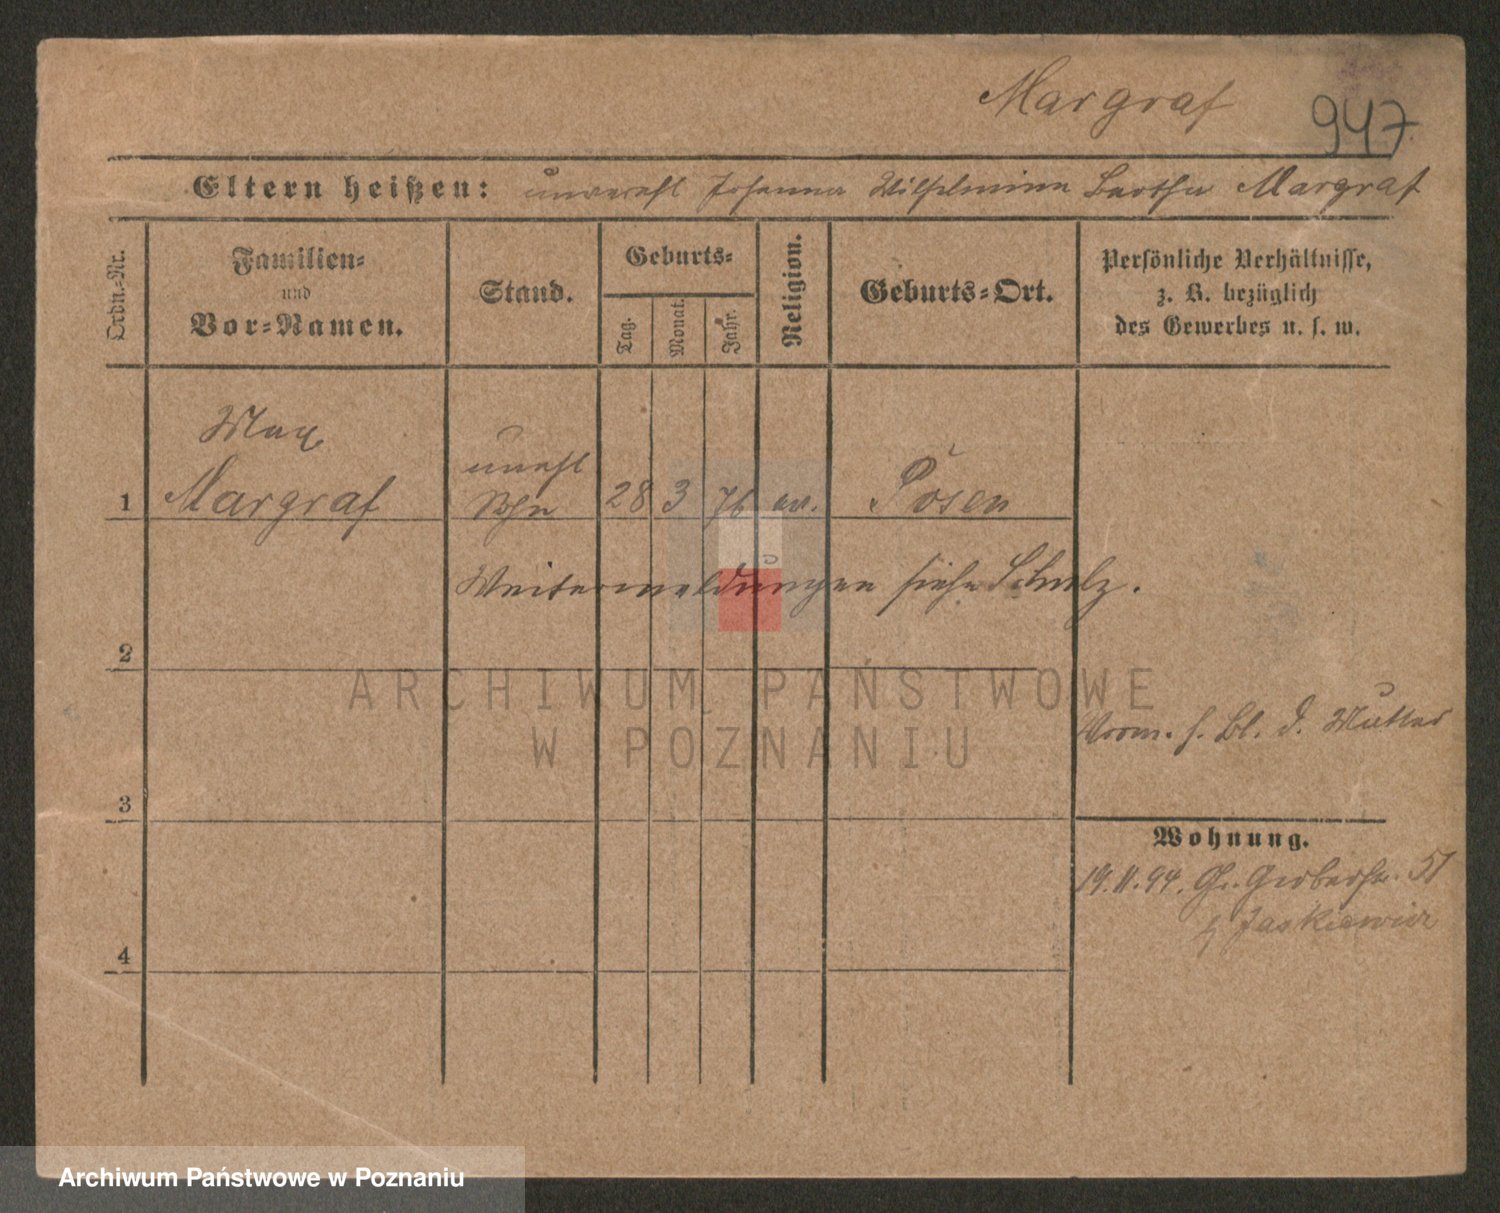 Margraf
947
Eltern heißen: unverehl Johanna Wilhelmine Bertha Margraf
Ordn.-Nr.
Familien-
und
Vor-Namen.
Stand.
Geburts-
Tag.
Monat.
Jahr.
Religion.
Geburts-Ort.
Persönliche Verhältnisse,
z. B. bezüglich
des Gewerbes u. s. w.
Max
unehl
1 Margraf Sohn 28 3 76 ev. Posen
Weitermeldungen siehe Schulz.
2
ARCHIWUM PAŃSTWOWE
W POZNANIU
Vorm. s. Bl. d. Mutter
3
Wohnung.
19.11.94. Gr. Gerberstr. 51
b/ Jaskiewicz
4
Archiwum Państwowe w Poznaniu